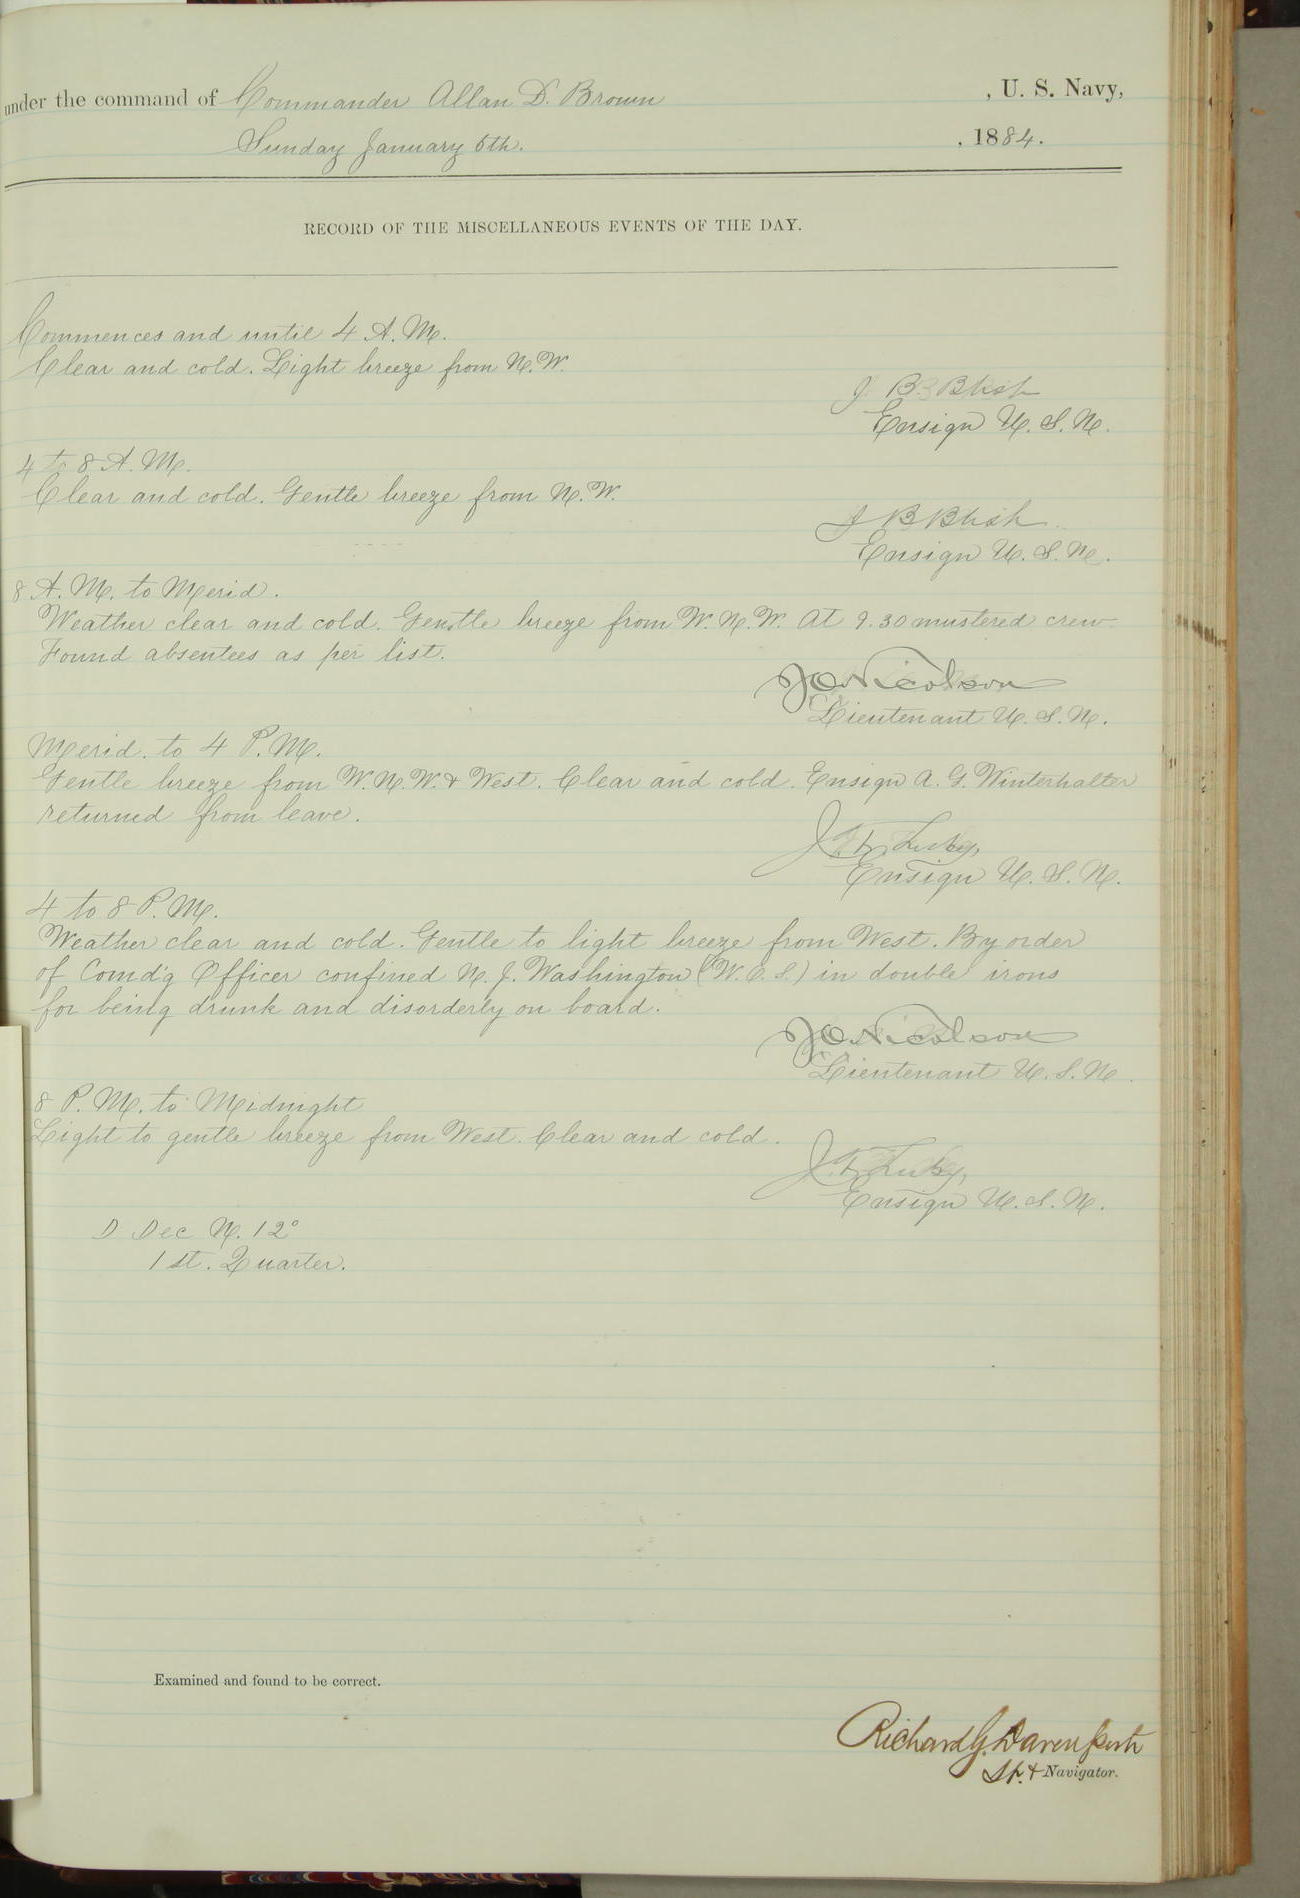 under the command of Commander Allan D. Brown , U. S. Navy,
Sunday January 6th. , 1884.
RECORD OF THE MISCELLANEOUS EVENTS OF THE DAY.
Commences and until 4 A.M.
Clear and cold. Light breeze from N.W.
J. B. Blish
Ensign U.S.N.
4 to 8 A.M.
Clear and cold. Gentle breeze from N.W.
J B Blish
Ensign U.S.N.
8 A.M. to Merid.
Weather clear and cold. Gentle breeze from W.N.W. At 9.30 mustered crew.
Found absentees as per list.
Nicolson
Lieutenant U.S.N.
Merid. to 4 P.M.
Gentle breeze from W.N.W. & West. Clear and cold. Ensign A. G. Winterhalter
returned from leave.
Ensign U.S.N.
4 to 8 P.M.
Weather clear and cold. Gentle to light breeze from West. By order
of Comd'g Officer confined N. J. Washington (W.C.S.) in double irons
for being drunk and disorderly on board.
Nicolson
Lieutenant U.S.N.
8 P.M. to Midnight
Light to gentle breeze from West. Clear and cold.
Ensign U.S.N.
Dec N. 12°
1st. Quarter.
Examined and found to be correct.
Richard G. Davenport
Lt. & Navigator.